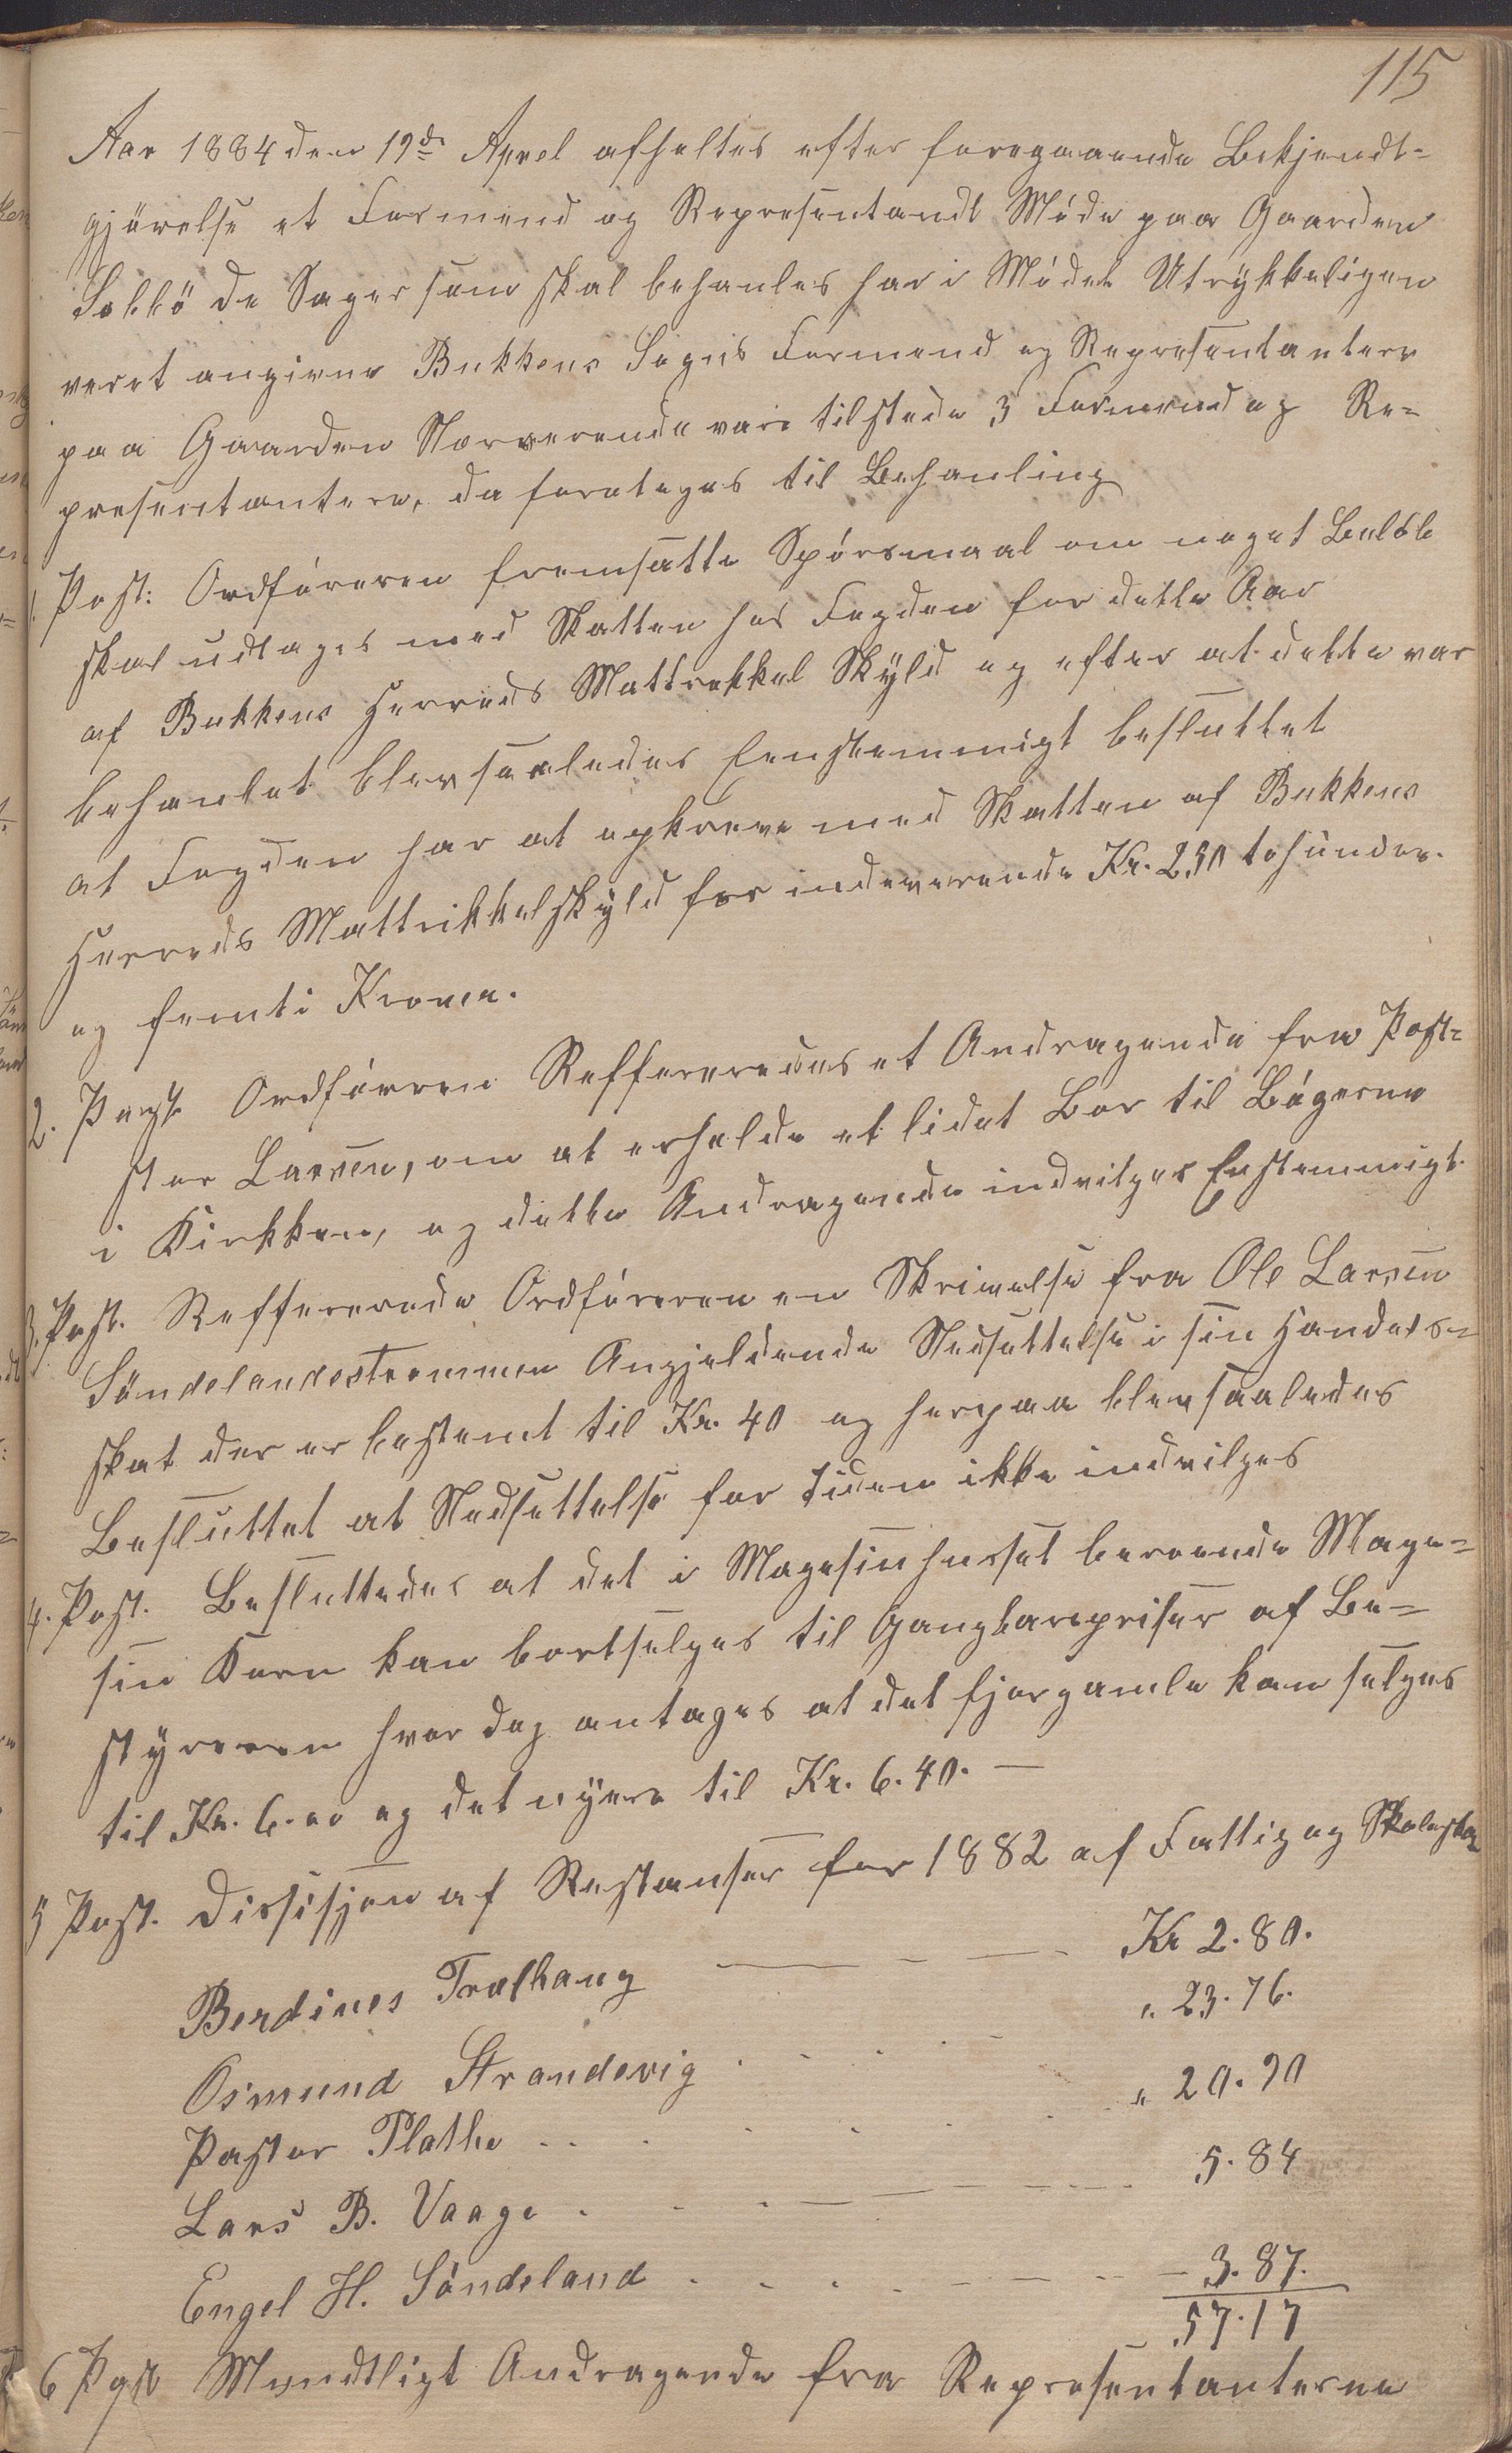 115
Aar 1884 den 19de Aprel afholtes efter foregaaende Bekjendt=
gjörelse et Formend og Representandt Möde paa Gaarden
Sokkö de Sager som skal behanles har i Mödet Utrykkeligen
veret angivne Bukkens Sogns Formend og Representantere
paa Gaarden Nerverende vare tilstede 3 Formend og Re=
presentantere, da foretoges til Behanling
1. Post: Ordföreren fremsatte Spörsmaal om noget Belöb
skal udtages med Skatten hos Fogden for dette Aar
af Bukkens Herreds Mattrekkel Skyld og efter at dette var
behanlet blev saaledes Eenstemmigt besluttet
at Fogden har at opkreve med Skatten af Bukkens
Herreds Mattrikkelskyld for indeverende Kr. 250 tohunder
og femti Kroner.
2. Post Ordförren Reffereredes et Andragende fra Post=
ster Larsen, om at erholde et lidet Bor til Bögerne
i Kirkken, og dette Andragende indvilges Enstemmigt
3. Post. Reffererede Ordföreren en Skrivelse fra Ole Larsen
Söndelandsstrommen Angjeldende Nedsettelse i sin Handels=
skat der er bestemt til Kr. 40 og herpaa blev saaledes
Besluttet at Nedsettelse for Tiden ikke indvilges
4. Post. Besluttedes at det i Magesinhusset beroende Maga=
sin Korn kan bortselges til Gangbarepriser af Be=
styreren hvor dog antages at det fjorgamle kan selges
til Kr. 6.00 og det nyere til Kr. 6.40. —
5 Post. Dissisjon af Restanser for 1882 af Fattig og Skoleskat
Berdines Trælhaug — — — Kr 2.80.
Osmund Strandevig . . . . „ 23.76.
Pastor Plathe . . . . . „ 20.90
Lars B. Vaage . . . — — — 5.84
Engel H. Söndeland . . . . — — — 3.87.
57.17
6 Post Mundtligt Andragende fra Representanterne